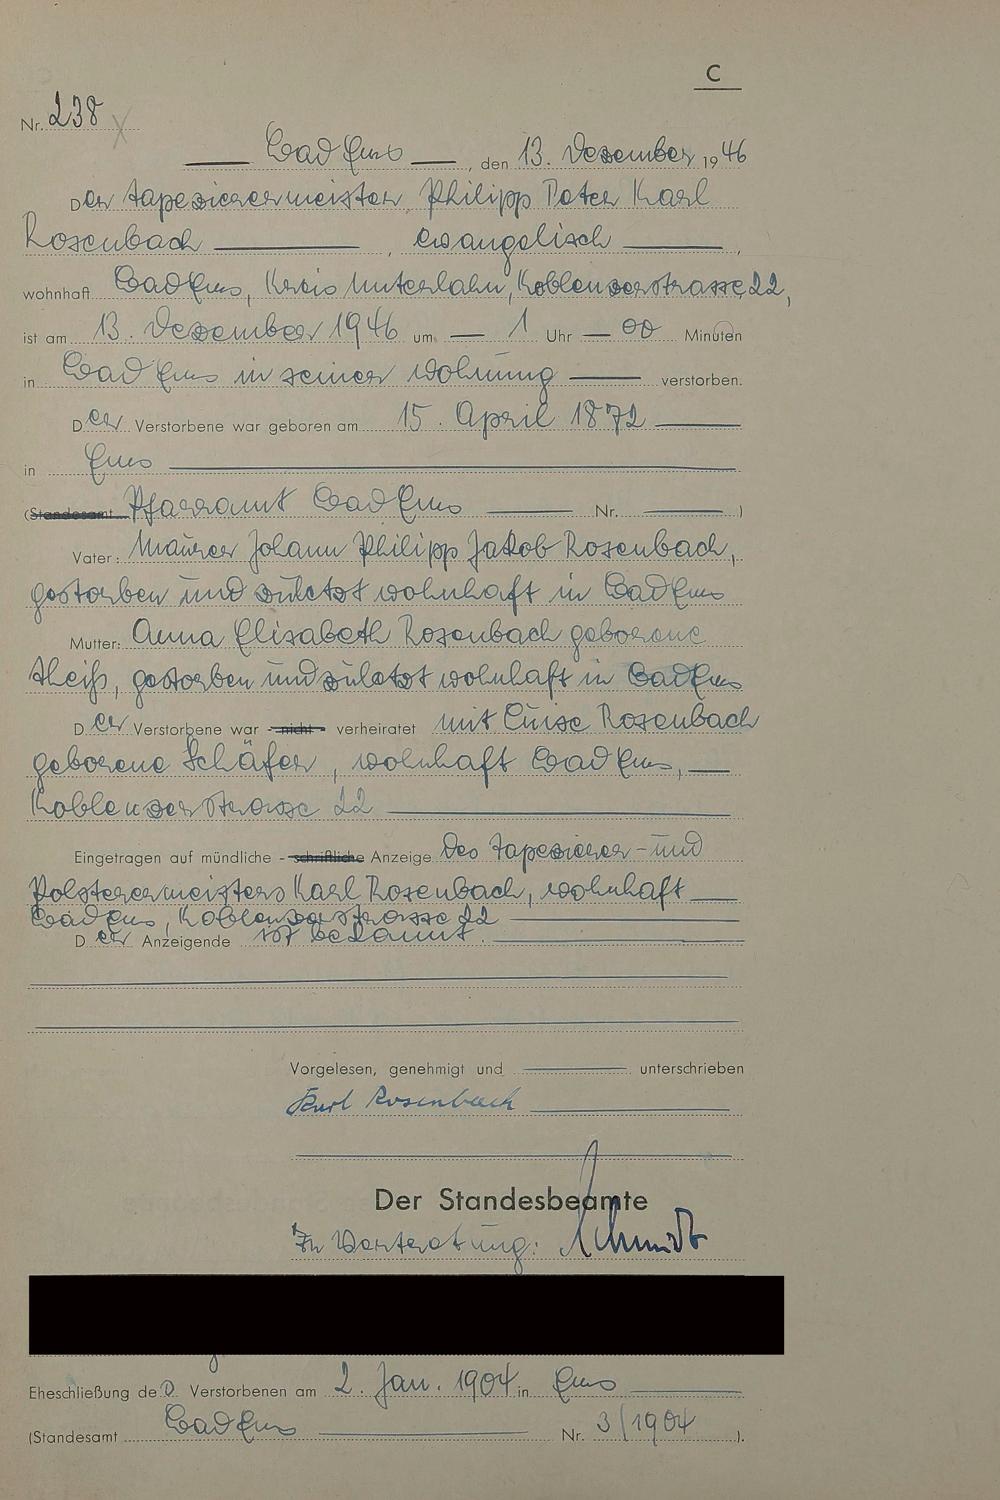 C
Nr. 238
Bad Ems, den 13. Dezember 1946
Der Tapezierermeister Philipp Peter Karl
Rosenbach, evangelisch,
wohnhaft Bad Ems, Kreis Unterlahn, Koblenzerstrasse 22,
ist am 13. Dezember 1946 um 1 Uhr 00 Minuten
in Bad Ems in seiner Wohnung verstorben.
Der Verstorbene war geboren am 15. April 1872
in Ems
(Standesamt Pfarramt Bad Ems Nr. )
Vater: Maurer Johann Philipp Jakob Rosenbach,
gestorben und zuletzt wohnhaft in Bad Ems
Mutter: Anna Elisabeth Rosenbach geborene
Theiß, gestorben und zuletzt wohnhaft in Bad Ems
Der Verstorbene war nicht verheiratet mit Luise Rosenbach
geborene Schäfer, wohnhaft Bad Ems,
Koblenzerstrasse 22
Eingetragen auf mündliche - schriftliche Anzeige des Tapezierer- und
Polsterermeisters Karl Rosenbach, wohnhaft
Bad Ems, Koblenzerstrasse 22
Der Anzeigende ist bekannt.
Vorgelesen, genehmigt und unterschrieben
Karl Rosenbach
Der Standesbeamte
In Vertretung: Schmidt
Eheschließung des Verstorbenen am 2. Jan. 1904 in Ems
(Standesamt Bad Ems Nr. 3/1904).